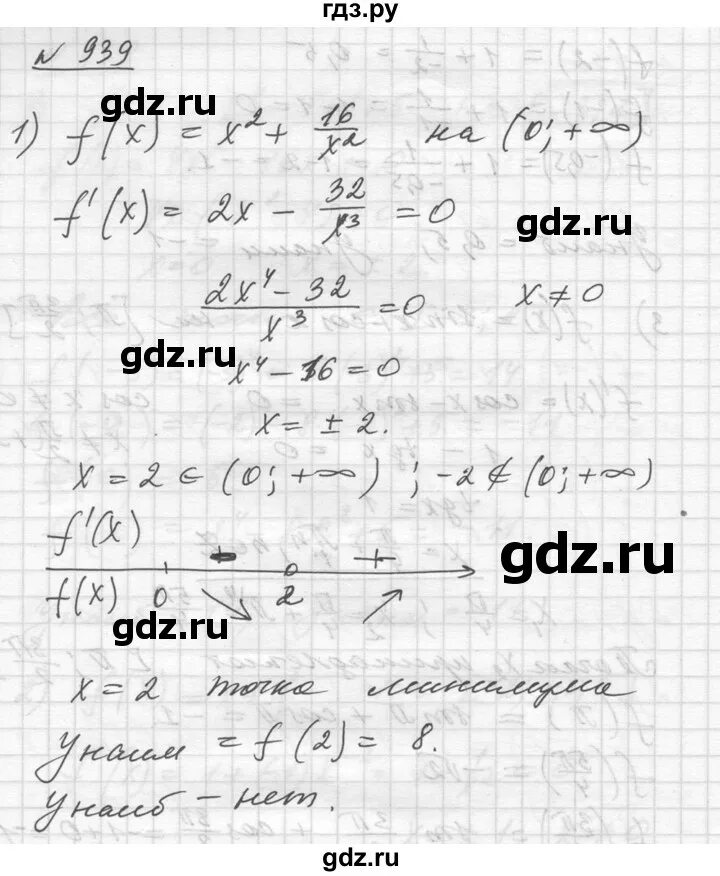 гдз.ру
№ 939
gdz.ru
1) f(x) = x² + 16/x² на (0; +∞)
f'(x) = 2x − 32/x³ = 0
gdz.ru
(2x⁴ − 32)/x³ = 0 x ≠ 0
gdz.ru
x⁴ − 16 = 0
x = ± 2.
x = 2 ∈ (0; +∞) ; −2 ∉ (0; +∞)
f'(x) − +
gdz.ru
f(x) 0 ↘ 2 ↗
gdz.ru
x = 2 точка минимума
Унаим = f(2) = 8.
Унаиб – нет.
gdz.ru